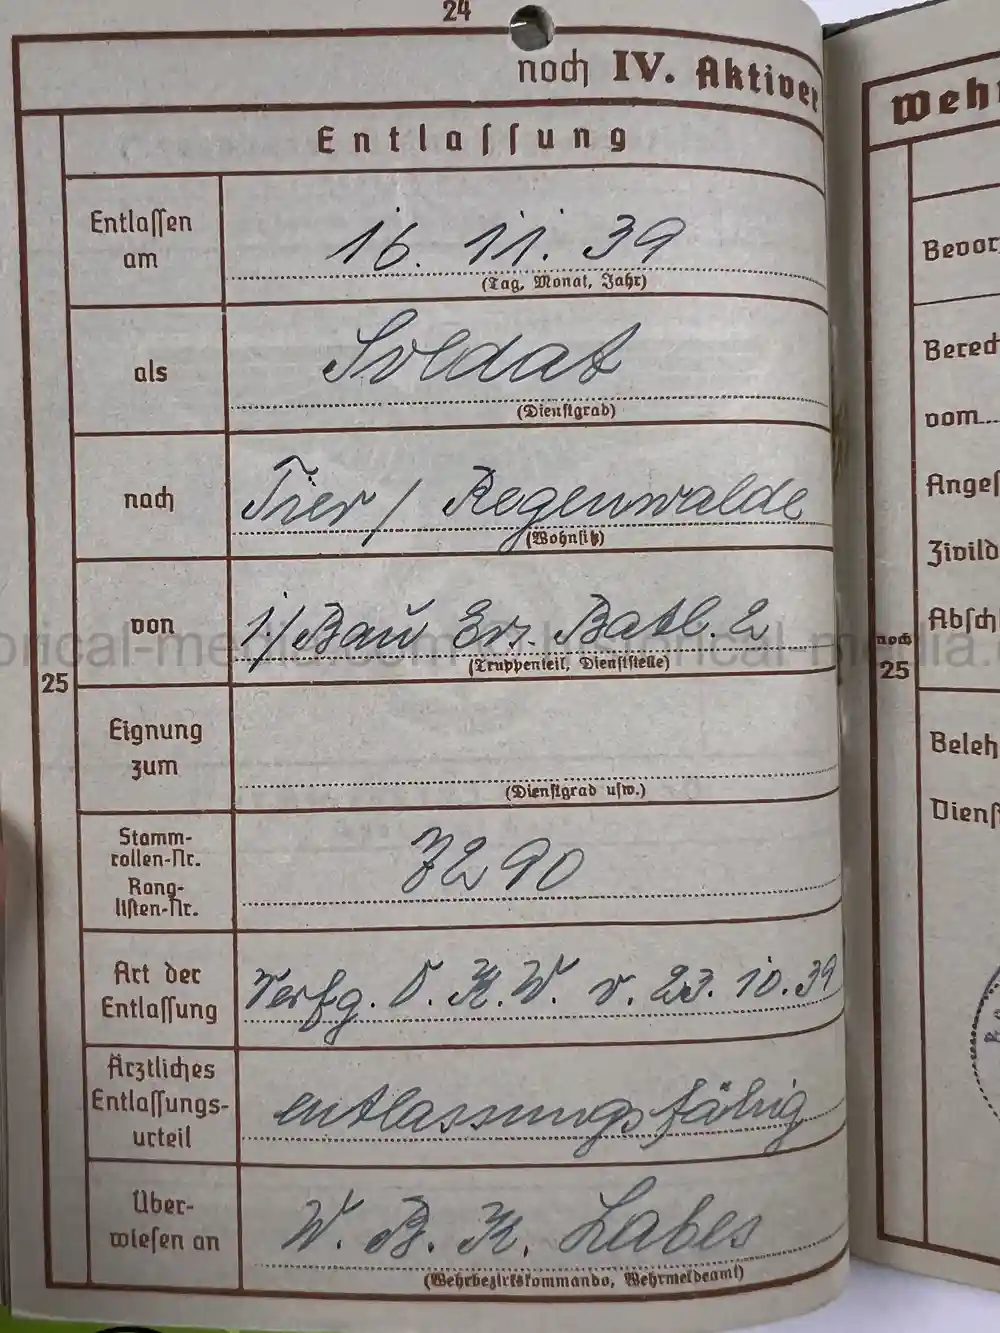 24
noch IV. Aktiver
Entlassung
Entlassen am
16. 11. 39
(Tag, Monat, Jahr)
als
Soldat
(Dienstgrad)
nach
Trier / Regenwalde
(Wohnsitz)
von
1./Bau Ers. Batl. 2
(Truppenteil, Dienststelle)
25
Eignung
zum
(Dienstgrad usw.)
Stamm-
rollen-Nr.
Rang-
listen-Nr.
3290
Art der
Entlassung
Verfg. O. K. W. v. 23. 10. 39
Ärztliches
Entlassungs-
urteil
entlassungsfähig
Über-
wiesen an
W. B. K. Labes
(Wehrbezirkskommando, Wehrmeldeamt)
Weh
Bevor
Berech
vom
Anges
Zivild
Absch
noch
25
Beleh
Diens